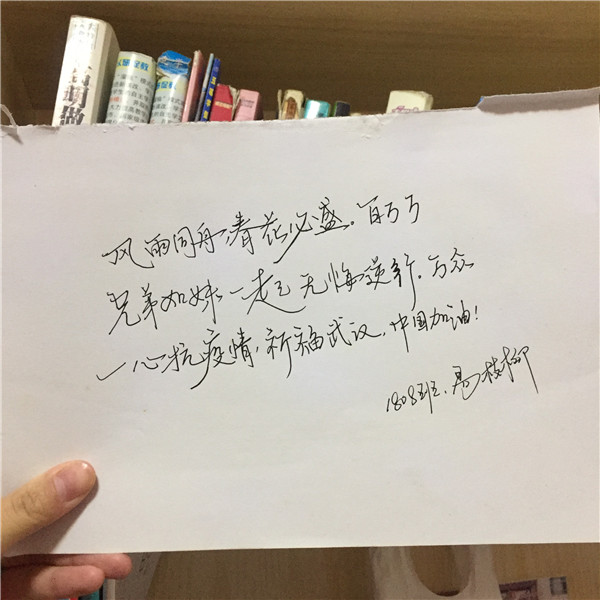 风雨同舟,春花必盛。百万万
兄弟姐妹一起无悔焕新。万众
一心抗疫情,祈福武汉,中国加油!
1808班.易枝柳